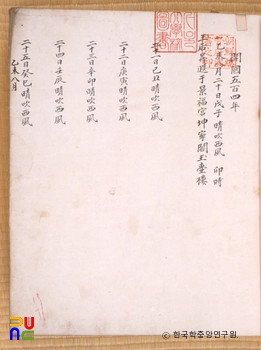 開國五百四年
乙未八月二十日戊子晴吹西風 卯時
王后昇遐于景福宮坤寧閤玉壺樓
二十一日己丑晴吹西風
二十二日庚寅晴吹西風
二十三日辛卯晴吹西風
二十四日壬辰晴吹西風
二十五日癸巳晴吹西風
乙未八月
ⓒ 한국학중앙연구원